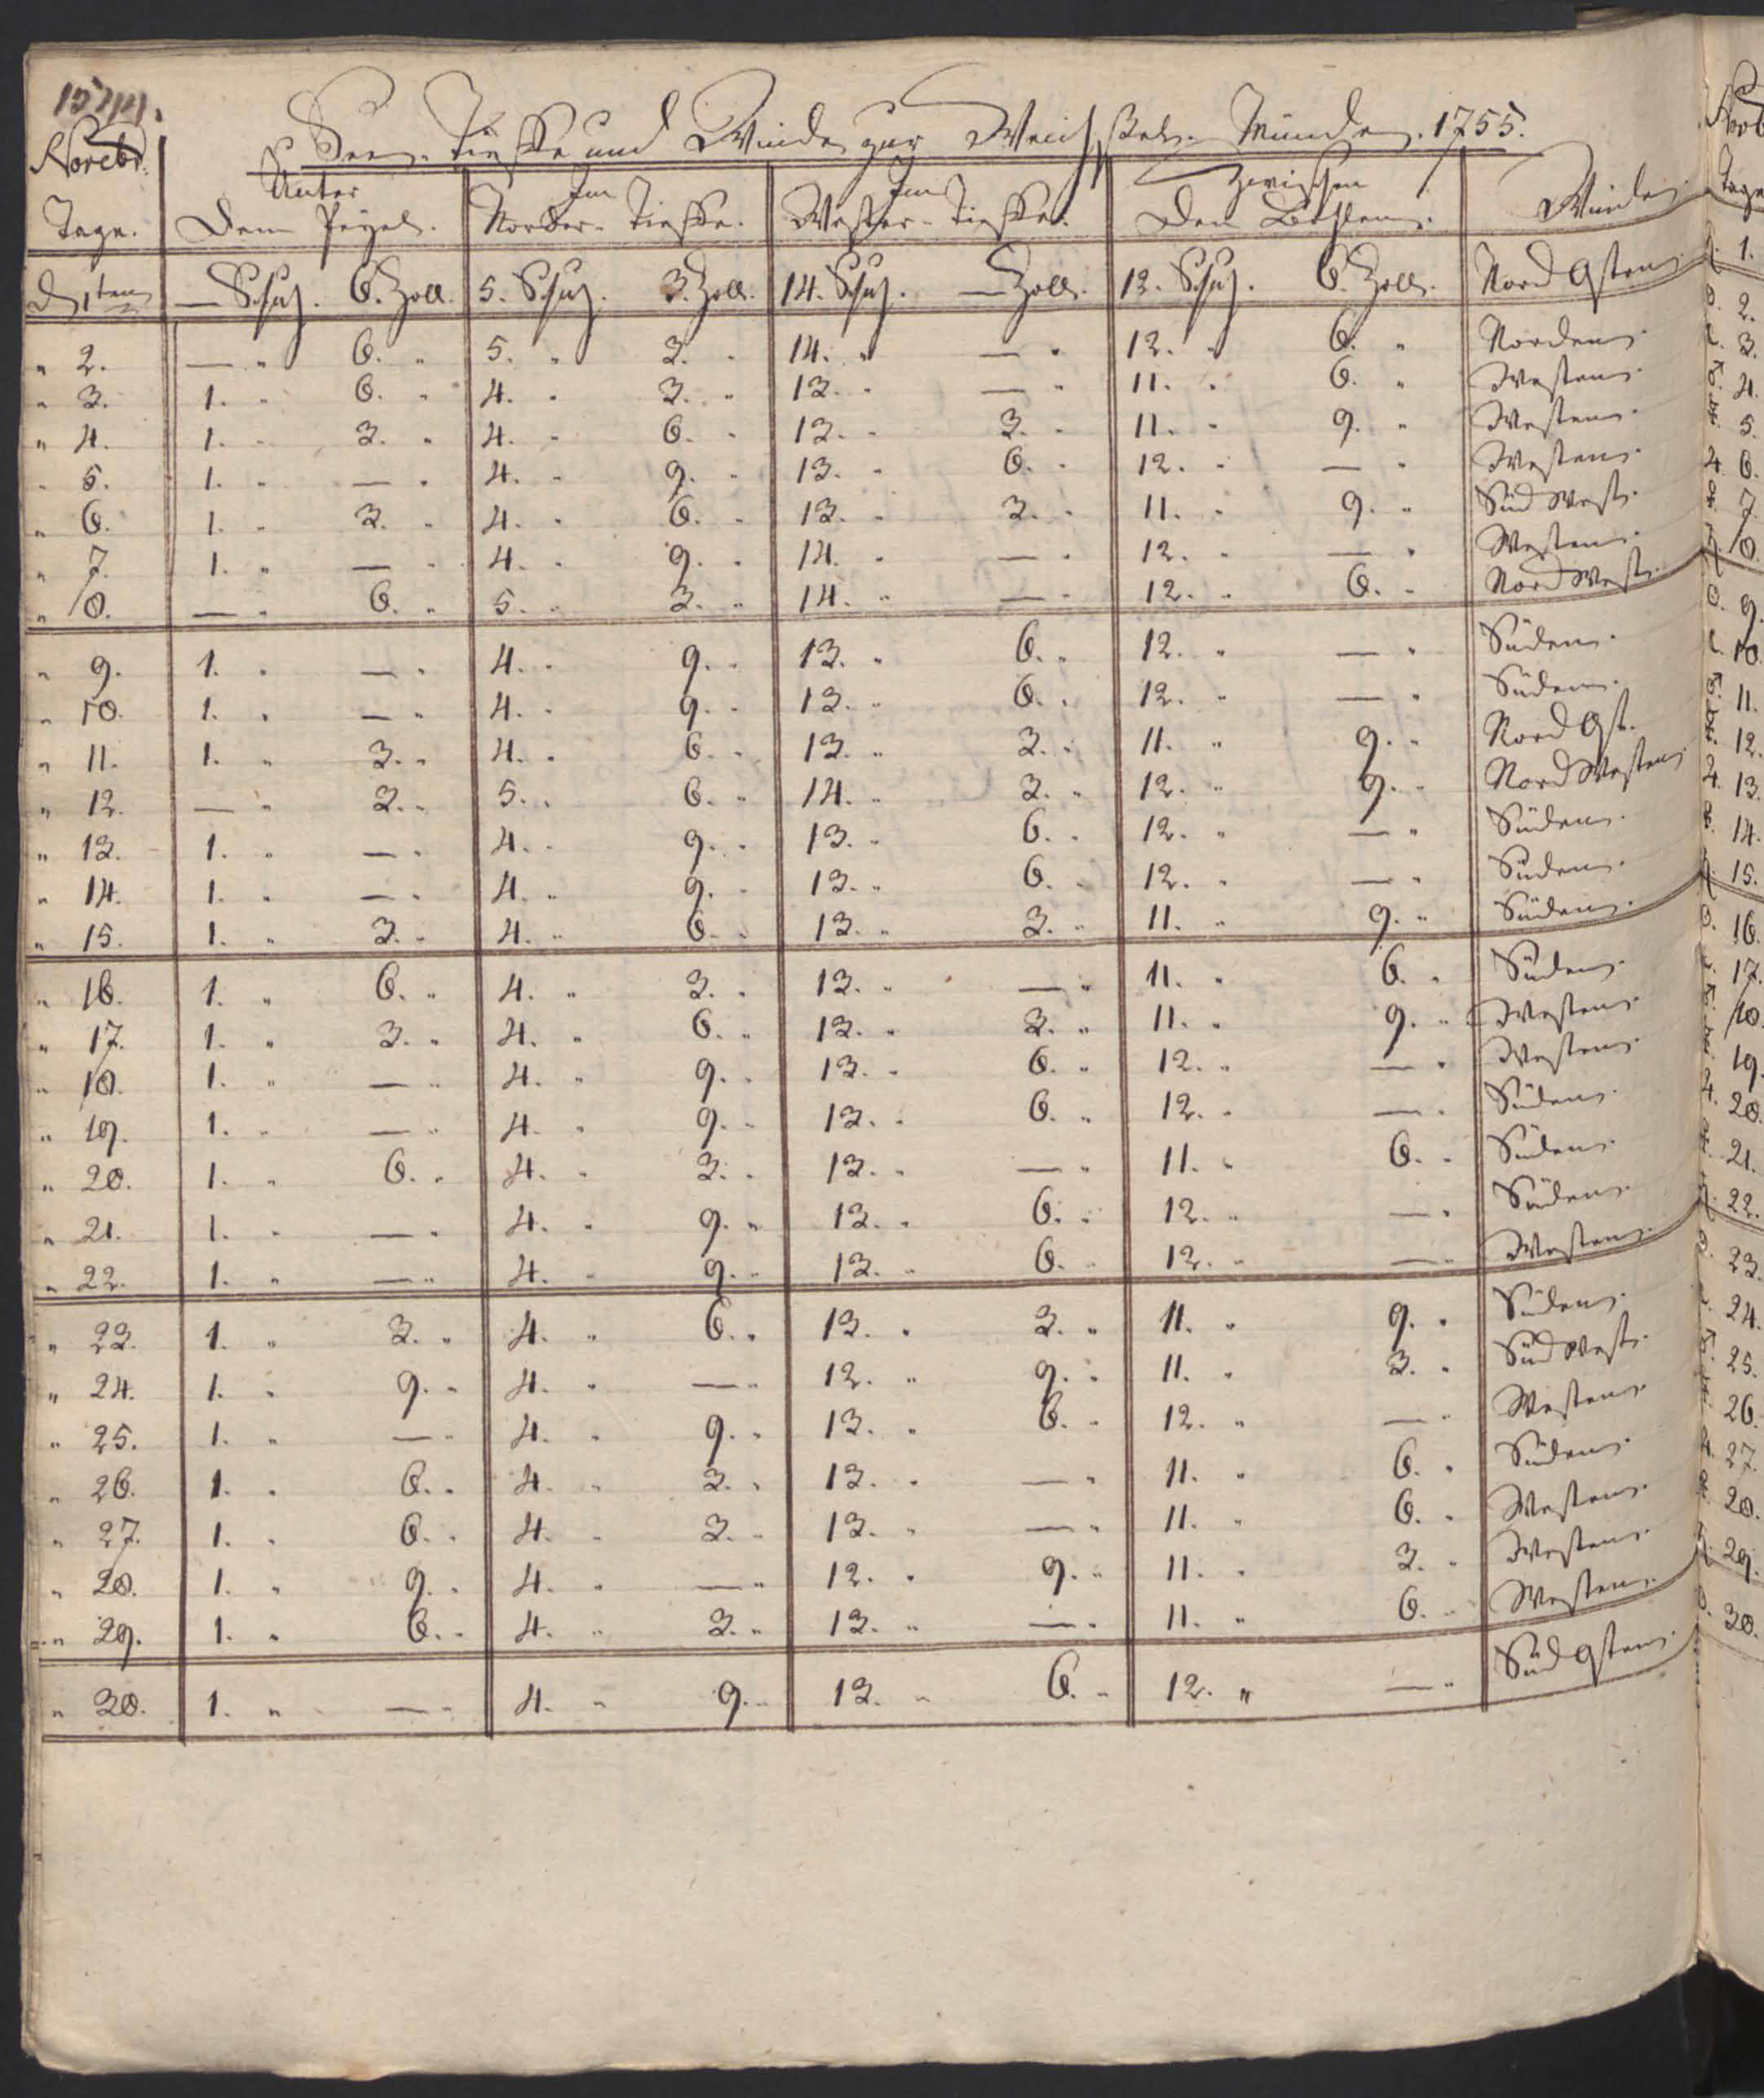 Novebr.
See-Tieffe und Winde zur Weichßel-Münde. 1755.
Tage. Unter Dem Peÿel. Im Norder-Tieffe. Im Wester-Tieffe. Zwischen Den Winde
D 1ten — Schuh. 6. Zoll. 5. Schuh. 3. Zoll. 14. Schuh. — Zoll. 12. Schuh. 6. Zoll. Nord Osten
" 2. — " 6. " 5. " 3. " 14. " — " 12. " 6. " Norden.
" 3. 1. " 6. " 4. " 3. " 13. " — " 11. " 6. " Westen.
" 4. 1. " 3. " 4. " 6. " 13. " 3. " 11. " 9. " Westen.
" 5. 1. " — " 4. " 9. " 13. " 6. " 12. " — " Westen.
" 6. 1. " 3. " 4. " 6. " 13. " 3. " 11. " 9. " Süd West.
" 7. 1. " — " 4. " 9. " 14. " — " 12. " — " Westen.
" 8. — " 6. " 5. " 3. " 14. " — " 12. " 6. " Nord West.
" 9. 1. " — " 4. " 9. " 13. " 6. " 12. " — " Süden.
" 10. 1. " — " 4. " 9. " 13. " 6. " 12. " — " Süden.
" 11. 1. " 3. " 4. " 6. " 13. " 3. " 11. " 9. " Nord Ost.
" 12. — " 3. " 5. " 6. " 14. " 3. " 12. " 9. " Nord Westen
" 13. 1. " — " 4. " 9. " 13. " 6. " 12. " — " Süden.
" 14. 1. " — " 4. " 9. " 13. " 6. " 12. " — " Süden.
" 15. 1. " 3. " 4. " 6. " 13. " 3. " 11. " 9. " Süden.
" 16. 1. " 6. " 4. " 3. " 13. " — " 11. " 6. " Süden.
" 17. 1. " 3. " 4. " 6. " 13. " 3. " 11. " 9. " Westen.
" 18. 1. " — " 4. " 9. " 13. " 6. " 12. " — " Westen.
" 19. 1. " — " 4. " 9. " 13. " 6. " 12. " — " Süden.
" 20. 1. " 6. " 4. " 3. " 13. " — " 11. " 6. " Süden.
" 21. 1. " — " 4. " 9. " 13. " 6. " 12. " — " Süden.
" 22. 1. " — " 4. " 9. " 13. " 6. " 12. " — " Westen.
" 23. 1. " 3. " 4. " 6. " 13. " 3. " 11. " 9. " Süden.
" 24. 1. " 9. " 4. " — " 12. " 9. " 11. " 3. " Süd West.
" 25. 1. " — " 4. " 9. " 13. " 6. " 12. " — " Westen.
" 26. 1. " 6. " 4. " 3. " 13. " — " 11. " 6. " Süden.
" 27. 1. " 6. " 4. " 3. " 13. " — " 11. " 6. " Westen.
" 28. 1. " 9. " 4. " — " 12. " 9. " 11. " 3. " Westen.
" 29. 1. " 6. " 4. " 3. " 13. " — " 11. " 6. " Westen.
" 30. 1. " — " 4. " 9. " 13. " 6. " 12. " — " Süd Osten.
1.
2.
3.
4.
5.
6.
7.
8.
9.
10.
11.
12.
13.
14.
15.
16.
17.
18.
19.
20.
21.
22.
23.
24.
25.
26.
27.
28.
29.
30.